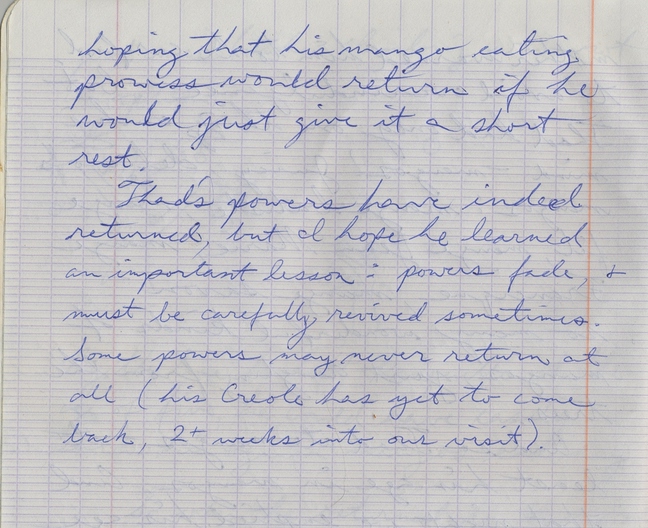 hoping that his mango eating
prowess would return if he
would just give it a short
rest.
Thad's powers have indeed
returned, but I hope he learned
an important lesson: powers fade, &
must be carefully revived sometimes.
Some powers may never return at
all (his Creole has yet to come
back, 2+ weeks into our visit).